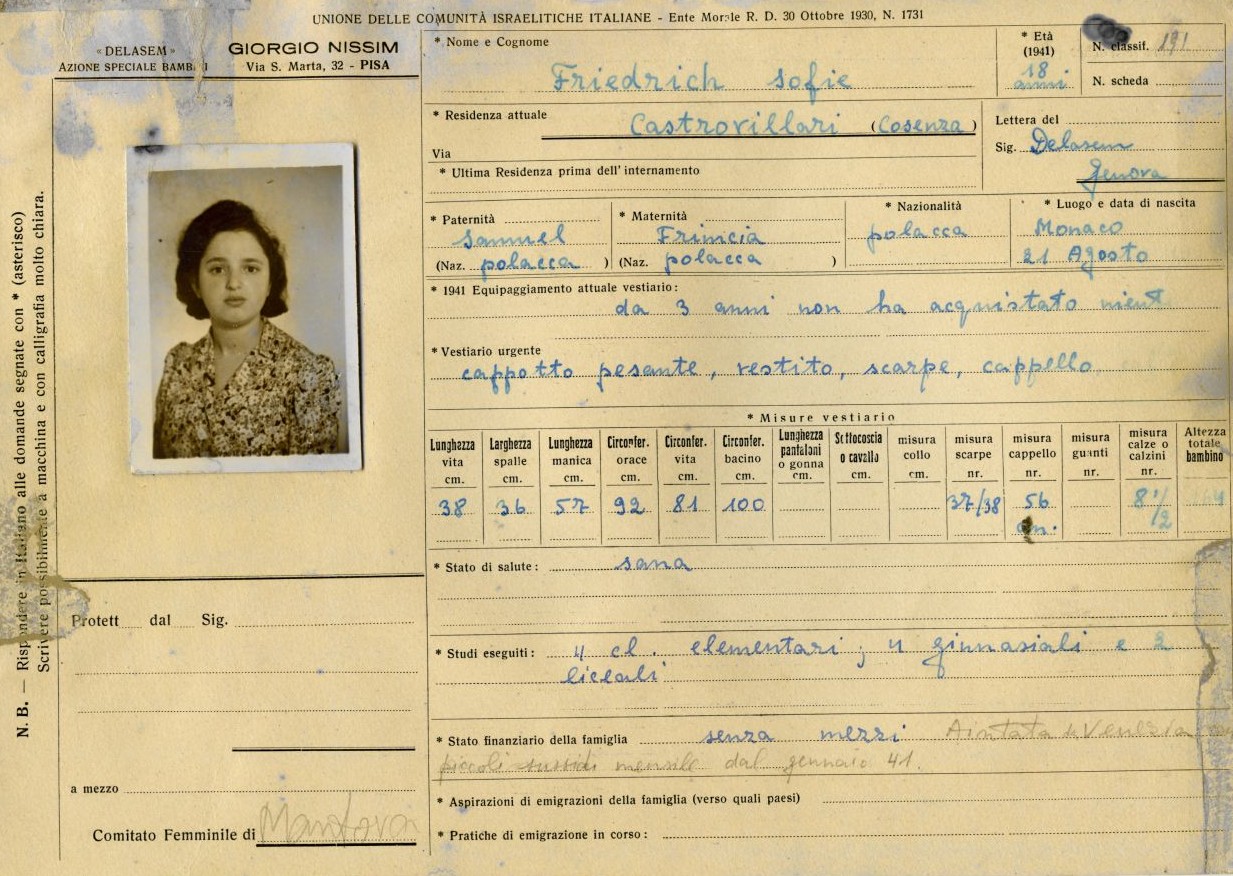 UNIONE DELLE COMUNITÀ ISRAELITICHE ITALIANE - Ente Morale R. D. 30 Ottobre 1930, N. 1731
« DELASEM »
AZIONE SPECIALE BAMBINI
GIORGIO NISSIM
Via S. Marta, 32 - PISA
N. B. — Rispondere in Italiano alle domande segnate con * (asterisco)
Scrivere possibilmente a macchina e con calligrafia molto chiara.
* Nome e Cognome
Friedrich Sofie
* Età
(1941)
18
anni
N. classif. 191
N. scheda
* Residenza attuale
Castrovillari (Cosenza)
Via
* Ultima Residenza prima dell'internamento
Lettera del
Sig. Delasem
Genova
* Paternità
Samuel
(Naz. polacca )
* Maternità
Frimcia
(Naz. polacca )
* Nazionalità
polacca
* Luogo e data di nascita
Monaco
21 Agosto
* 1941 Equipaggiamento attuale vestiario:
da 3 anni non ha acquistato nient
* Vestiario urgente
cappotto pesante, vestito, scarpe, cappello
* Misure vestiario
Lunghezza vita cm. 38
Larghezza spalle cm. 36
Lunghezza manica cm. 57
Circonfer. orace cm. 92
Circonfer. vita cm. 81
Circonfer. bacino cm. 100
Lunghezza pantaloni o gonna cm.
Sottocoscia o cavallo cm.
misura collo cm.
misura scarpe nr. 37/38
misura cappello nr. 56 cm.
misura guanti nr.
misura calze o calzini nr. 8 1/2
Altezza totale bambino
* Stato di salute: sana
* Studi eseguiti: 4 cl. elementari; 4 ginnasiali e 2
liceali
* Stato finanziario della famiglia senza mezzi Aiutata
piccoli sussidi mensile dal gennaio 41.
* Aspirazioni di emigrazioni della famiglia (verso quali paesi)
* Pratiche di emigrazione in corso:
Protett dal Sig.
a mezzo
Comitato Femminile di Mantova